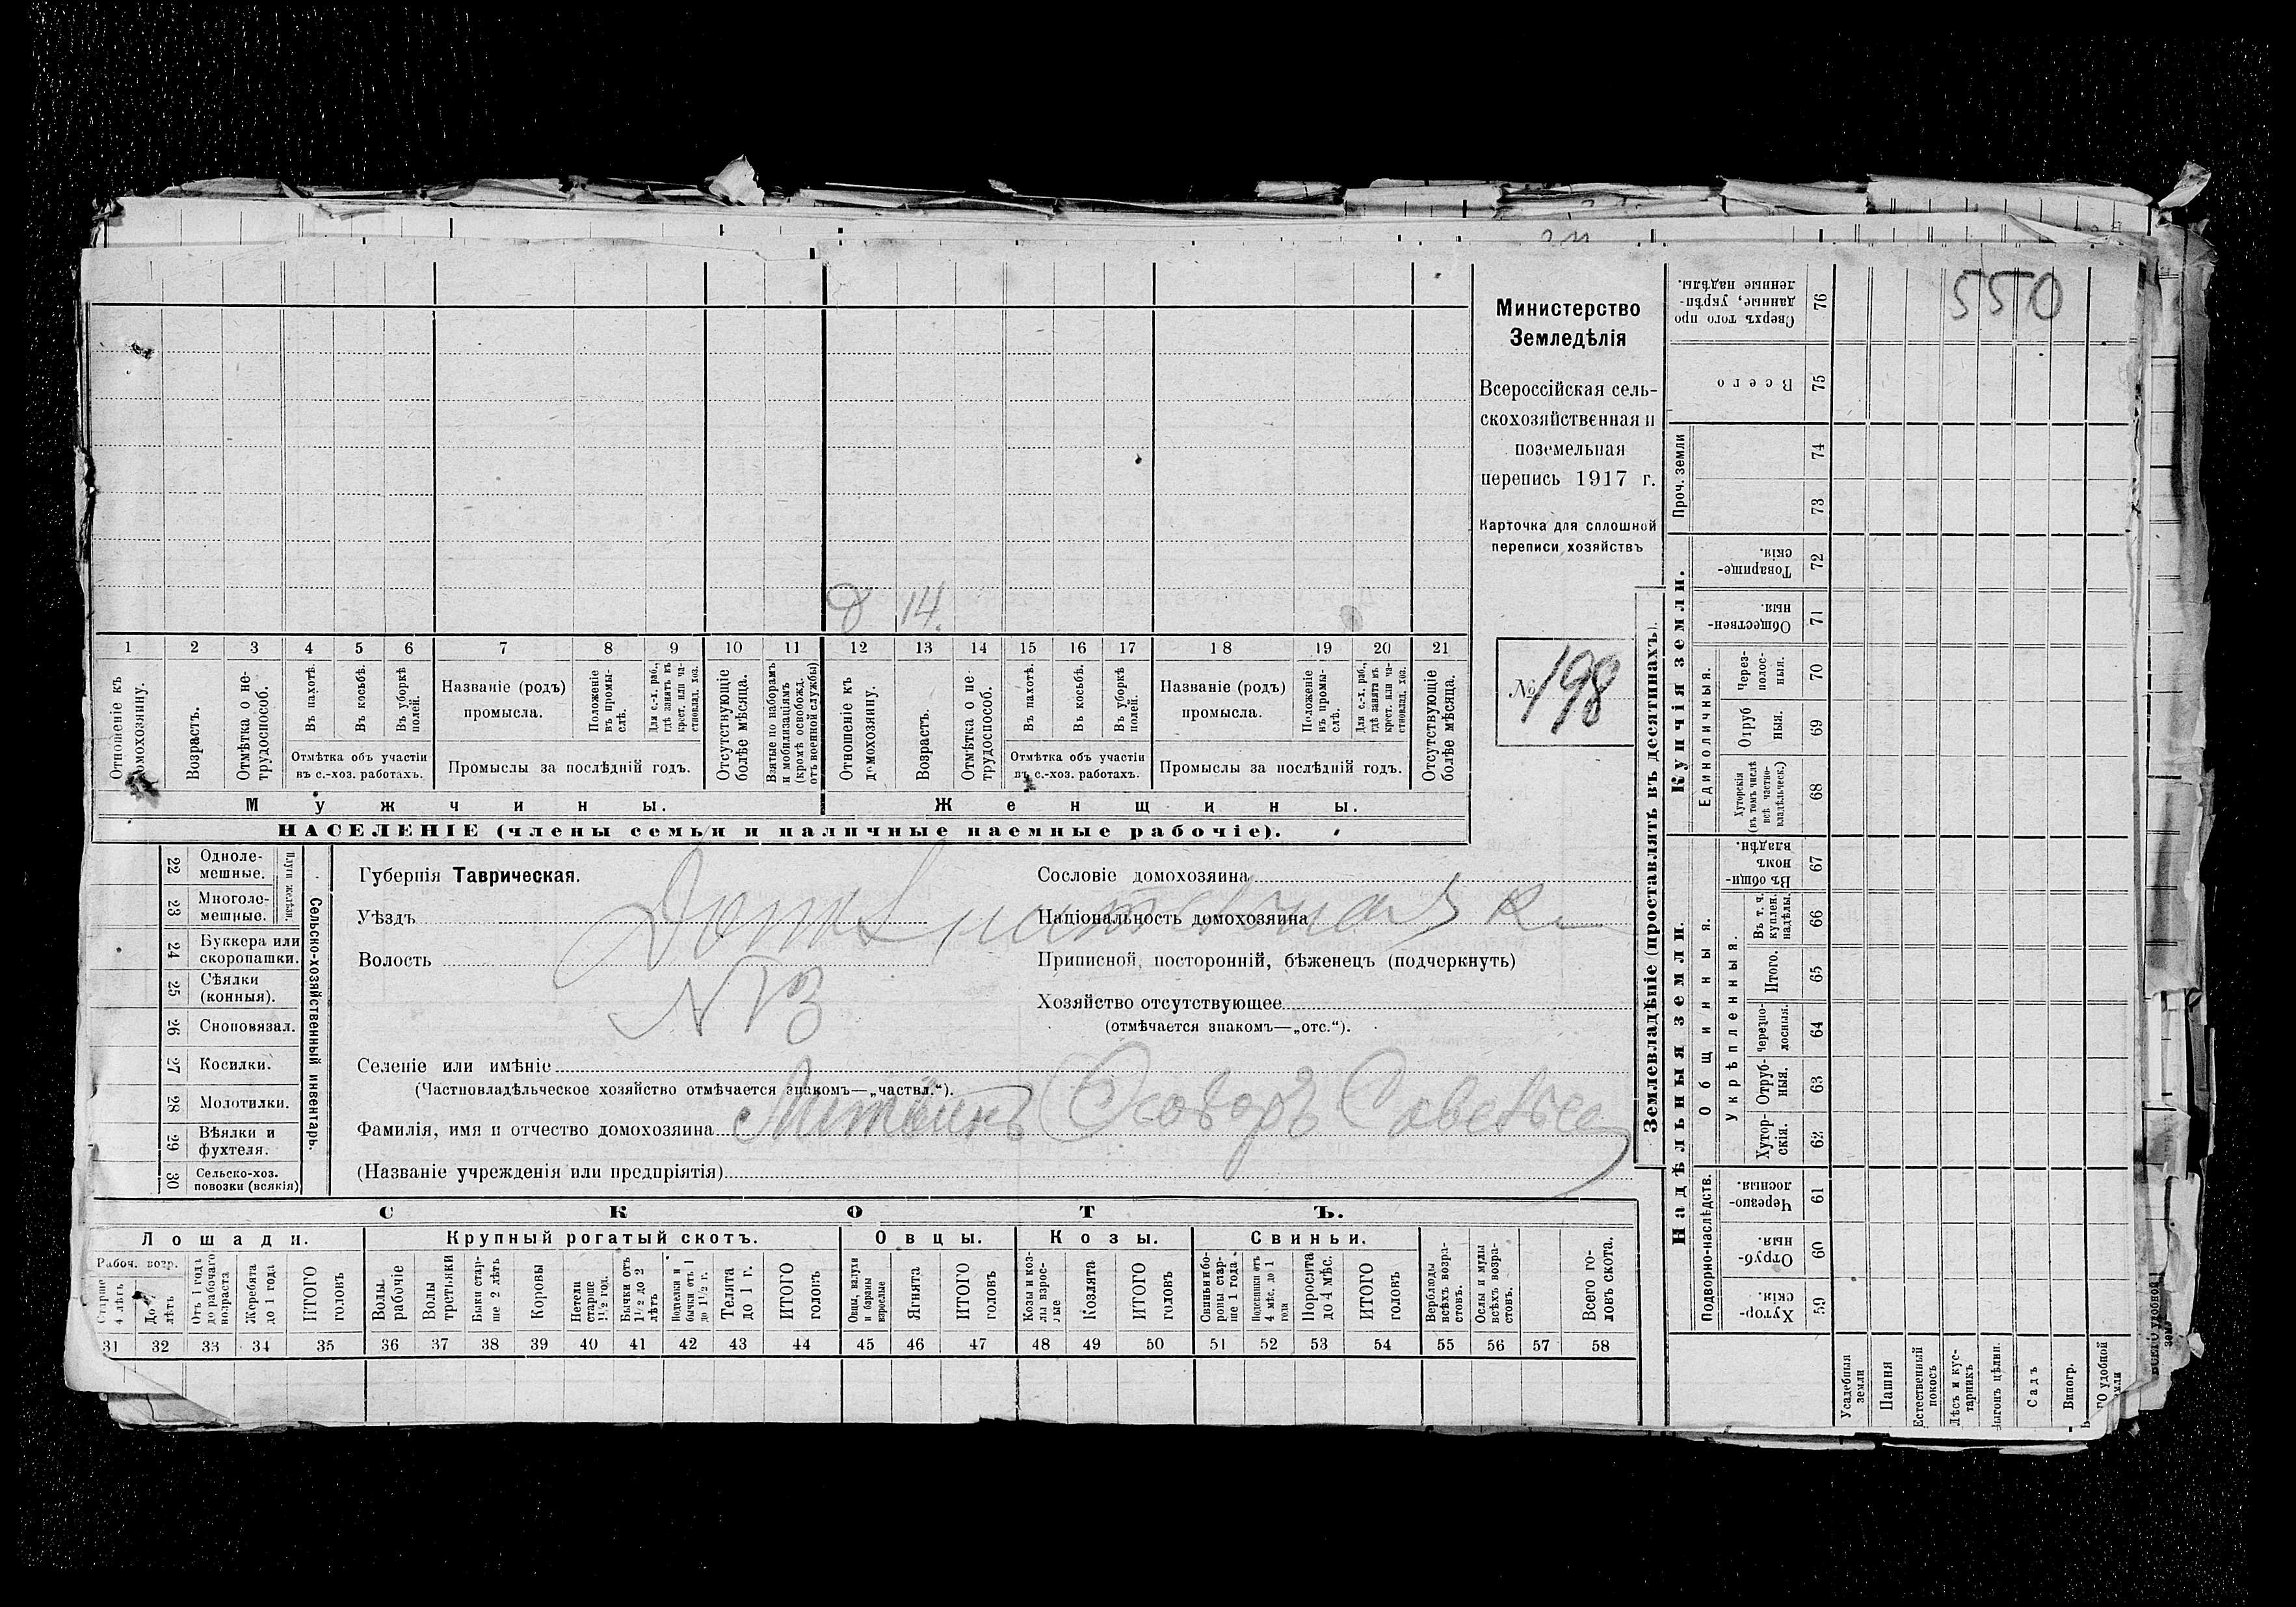 550
Министерство
Земледѣлія
Всероссійская сель-
скохозяйственная и
поземельная
перепись 1917 г.
Карточка для сплошной
переписи хозяйствъ
№ 198
д 14.
1 2 3 4 5 6 7 8 9 10 11 12 13 14 15 16 17 18 19 20 21
Отношеніе къ домохозяину.
Возрастъ.
Отмѣтка о не-трудоспособ.
Въ пахотѣ.
Въ косьбѣ.
Въ уборкѣ полей.
Отмѣтка объ участіи
въ с.-хоз. работахъ.
Названіе (родъ)
промысла.
Положеніе въ промы-слѣ.
Для с.-х. раб., гдѣ занятъ въ крест. или ча-стновлад. хоз.
Промыслы за послѣдній годъ.
Отсутствующіе болѣе мѣсяца.
Взятые по наборамъ и мобилизаціямъ (кромѣ освобожд. отъ военной службы)
Отношеніе къ домохозяину.
Возрастъ.
Отмѣтка о не-трудоспособ.
Въ пахотѣ.
Въ косьбѣ.
Въ уборкѣ полей.
Отмѣтка объ участіи
въ с.-хоз. работахъ.
Названіе (родъ)
промысла.
Положеніе въ промы-слѣ.
Для с.-х. раб., гдѣ занята въ крест. или ча-стновлад. хоз.
Промыслы за послѣдній годъ.
Отсутствующіе болѣе мѣсяца.
Мужчины.
Женщины.
НАСЕЛЕНІЕ (члены семьи и наличные наемные рабочіе).
Сельско-хозяйственный инвентарь.
Плуги желѣзн.
22 Одноле-мешные.
23 Многоле-мешные.
24 Буккера или скоропашки.
25 Сѣялки (конныя).
26 Сноповязал.
27 Косилки.
28 Молотилки.
29 Вѣялки и фухтеля.
30 Сельско-хоз. повозки (всякія)
Губернія Таврическая.
Уѣздъ
Волость
№ 3
Селеніе или имѣніе
(Частновладѣльческое хозяйство отмѣчается знакомъ—„частвл.“).
Фамилія, имя и отчество домохозяина
(Названіе учрежденія или предпріятія)
Сословіе домохозяина
Національность домохозяина
Приписной, посторонній, бѣженецъ (подчеркнуть)
Хозяйство отсутствующее
(отмѣчается знакомъ—„отс.“).
СКОТЪ.
Лошади.
Крупный рогатый скотъ.
Овцы.
Козы.
Свиньи.
Рабоч. возр.
Старше 4 лѣтъ
До 4 лѣтъ
Отъ 1 года до рабочаго возраста
Жеребята до 1 года
ИТОГО головъ
Волы рабочіе
Волы третьяки
Быки стар-ше 2 лѣтъ
Коровы
Нетели старше 1½ год.
Бычки отъ 1½ до 2 лѣтъ
Подтелки и бычки отъ 1 до 1½ г.
Телята до 1 г.
ИТОГО головъ
Овцы, валухи и бараны взрослые
Ягнята
ИТОГО головъ
Козы и коз-лы взрос-лые
Козлята
ИТОГО головъ
Свиньи и бо-ровы стар-ше 1 года
Подсвинки отъ 4 мѣс. до 1 года
Поросята до 4 мѣс.
ИТОГО головъ
Верблюды всѣхъ возра-стовъ.
Ослы и мулы всѣхъ возра-стовъ.
Всего го-ловъ скота.
31 32 33 34 35 36 37 38 39 40 41 42 43 44 45 46 47 48 49 50 51 52 53 54 55 56 57 58
Землевладѣніе (проставлять въ десятинахъ).
Купчія земли.
Надѣльныя земли.
Проч. земли
Единоличныя.
Общинныя.
Укрѣпленныя.
Подворно-наслѣдств.
Сверхъ того про-данные, укрѣп-ленные надѣлы. 76
Всего 75
74
73
Товарище-скія. 72
Обществен-ныя. 71
Через-полос-ныя. 70
Отруб-ныя. 69
Хуторскія (въ томъ числѣ всѣ частно-владѣльческ.) 68
Въ общин-номъ владѣн. 67
Въ т. ч. куплен. надѣлы. 66
Итого. 65
Черезпо-лосныя. 64
Отруб-ныя. 63
Хутор-скія. 62
Черезпо-лосныя. 61
Отруб-ныя. 60
Хутор-скія. 59
Усадебныя земли
Пашня
Естественный покосъ
Лѣсъ и кус-тарникъ
Выгонъ цѣлин.
Садъ
Виногр.